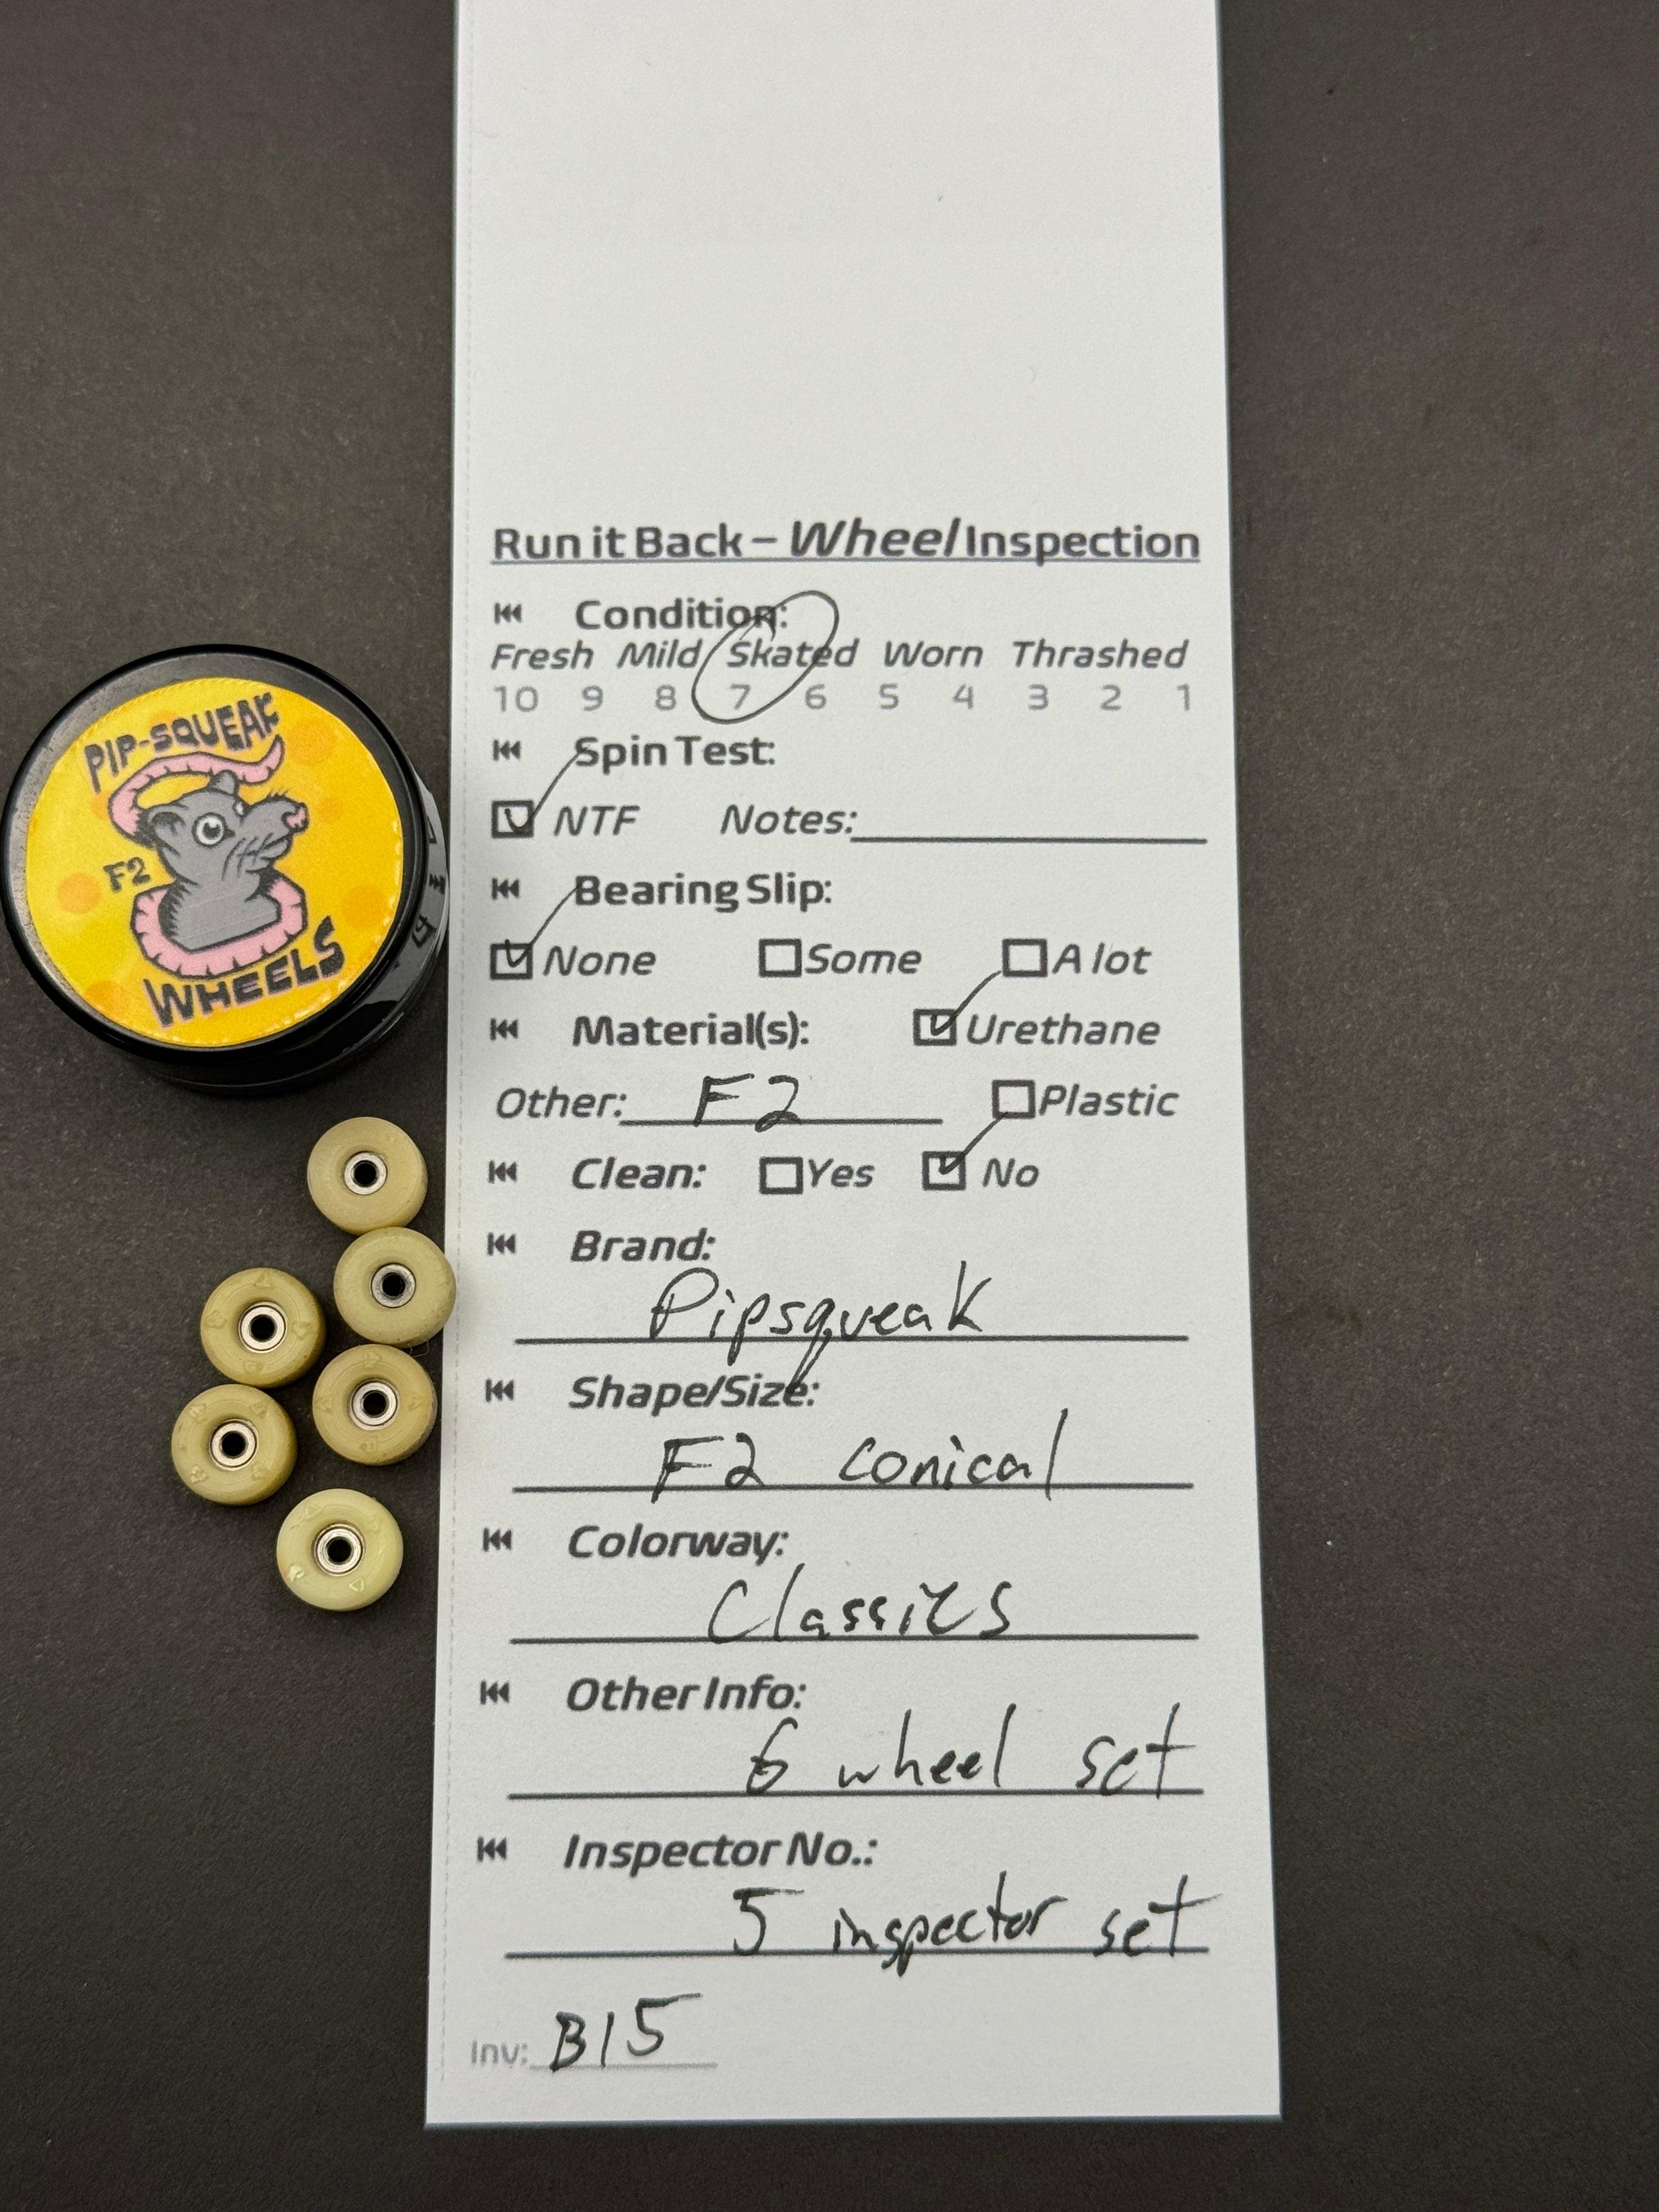 Run it Back – Wheel Inspection
Condition:
Fresh Mild Skated Worn Thrashed
10 9 8 7 6 5 4 3 2 1
Spin Test:
NTF Notes:
Bearing Slip:
None Some A lot
Material(s): Urethane
Other: F2 Plastic
Clean: Yes No
Brand:
Pipsqueak
Shape/Size:
F2 conical
Colorway:
Classics
Other Info:
6 wheel set
Inspector No.:
5 inspector set
Inv: B15
PIP-SQUEAK
F2
WHEELS